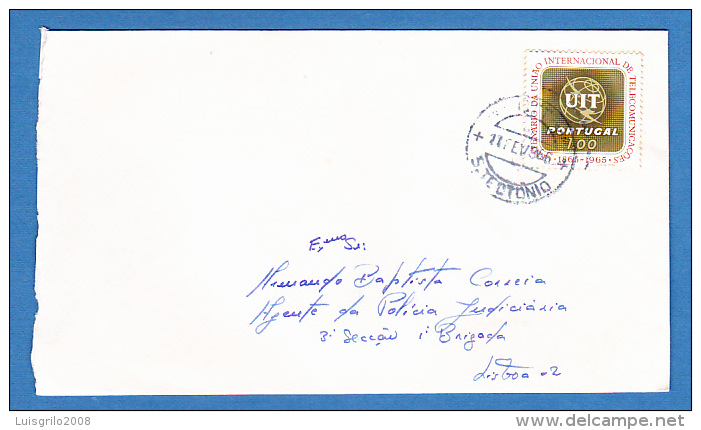 CENTENÁRIO DA UNIÃO INTERNACIONAL DE TELECOMUNICAÇÕES
UIT
PORTUGAL
1.00
1865-1965
11FEV966
S. TEOTONIO
Exmo Sr:
Armando Baptista Correia
Agente da Polícia Judiciária
3ª Secção 1ª Brigada
Lisboa 02
Luisgrilo2008
www.delcampe.net